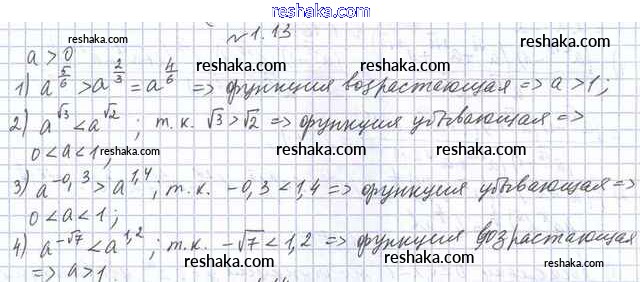 reshaka.com
№1.13
reshaka.com reshaka.com
a > 0
reshaka.com
1) a^(5/6) > a^(2/3) = a^(4/6) => функция возрастающая => a > 1;
reshaka.com
2) a^√3 < a^√2 ; т.к. √3 > √2 => функция убывающая =>
0 < a < 1; reshaka.com reshaka.com reshaka.com
3) a^(-0,3) > a^(1,4); т.к. -0,3 < 1,4 => функция убывающая =>
0 < a < 1; reshaka.com reshaka.com
reshaka.com
4) a^(-√7) < a^(1,2); т.к. -√7 < 1,2 => функция возрастающая
=> a > 1. reshaka.com reshaka.com
reshaka.com